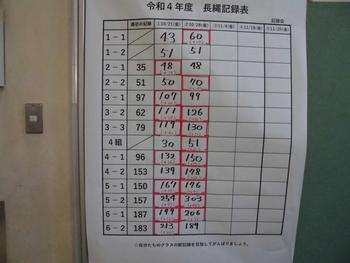 令和４年度　長縄記録表
記録会
最初の記録 1:10/21(金) 2:10/28(金) 3:11/4(金) 4:11/18(金) 5:11/25(金)
1-1 43 60
1-2 51 51
2-1 35 48 48
2-2 51 50 70
3-1 97 107 99
3-2 62 111 126
3-3 79 119 130
4組 30 51
4-1 96 132 150
4-2 153 139 178
5-1 150 167 176
5-2 157 254 303
6-1 187 199 206
6-2 183 213 189
☆自分たちのクラスの新記録を目指してがんばりましょう。